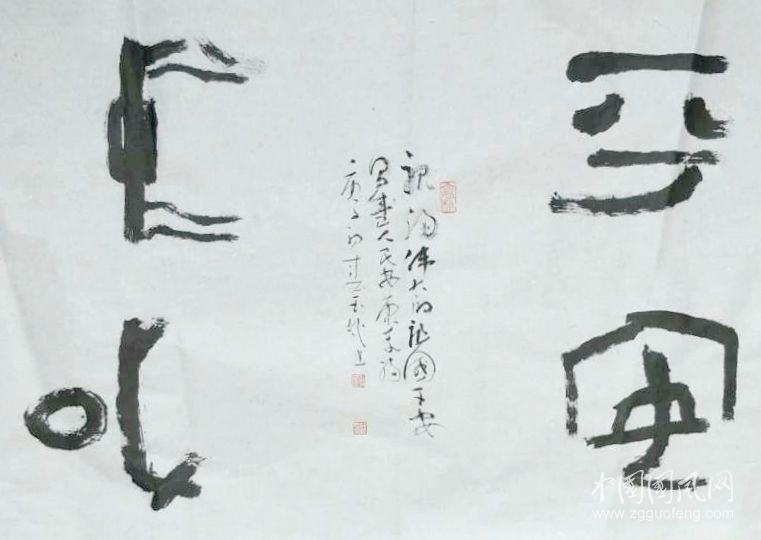 平安
中国
祝福伟大的祖国平安
昌盛人民安康幸福
庚子初
中国国风网
www.zgguofeng.com